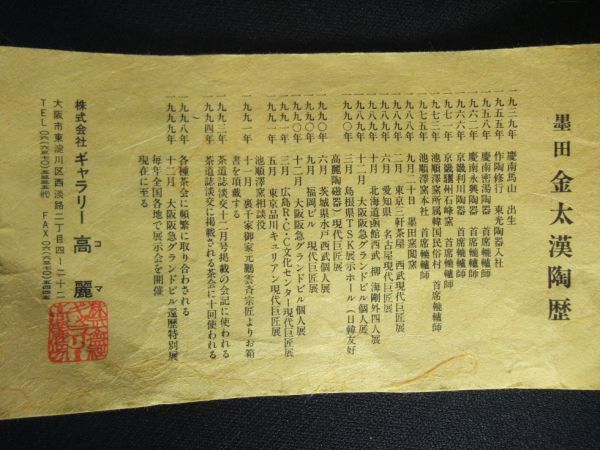 墨田 金太漢陶歴
一九三九年 慶南馬山 出生
一九五五年 作陶修行 東光陶器入社
一九五八年 慶南密湯陶器 首席轆轤師
一九六二年 慶南永興陶器 首席轆轤師
一九六六年 京畿利川陶器 首席轆轤師
一九七一年 京畿驪州石峰窯 首席轆轤師
一九七三年 池順澤窯所属韓国民俗村 首席轆轤師
一九七五年 池順澤窯本社 首席轆轤師
一九八八年 九月二十日 墨田窯開窯
二月 東京三軒茶屋 西武現代巨匠展
六月 愛知県 名古屋現代巨匠展
十月 北海道函館西武 柳 海剛外四人展
十二月 大阪阪急グランドビル個人展
一九九〇年 三月 島根県TSK展示ホール(日韓友好
高麗陶磁器)現代巨匠展
一九九〇年 六月 茨城県水戸西武個人展
九月 福岡ビル 現代巨匠展
十二月 大阪阪急グランドビル個人展
一九九一年 三月 広島R・C・C文化センター現代巨匠展
五月 東京品川キュリアン現代巨匠展
池順澤窯相談役
一九九一年 十一月 裏千家御家元鵬雲斉宗匠よりお箱
書を頂戴する
一九九三年 茶道誌淡交十二月号掲載の会記に使われる
一九九四年 茶道誌淡交に掲載される茶会に十回使われる
〜
一九九八年 各種茶会に頻繁に取り合わされる
一九九九年 十二月 大阪阪急グランドビル還歴特別展
毎年全国各地で展示会を開催
現在に至る
株式会社 ギャラリー 高麗
コマ
大阪市東淀川区西淡路二丁目四ー二十二